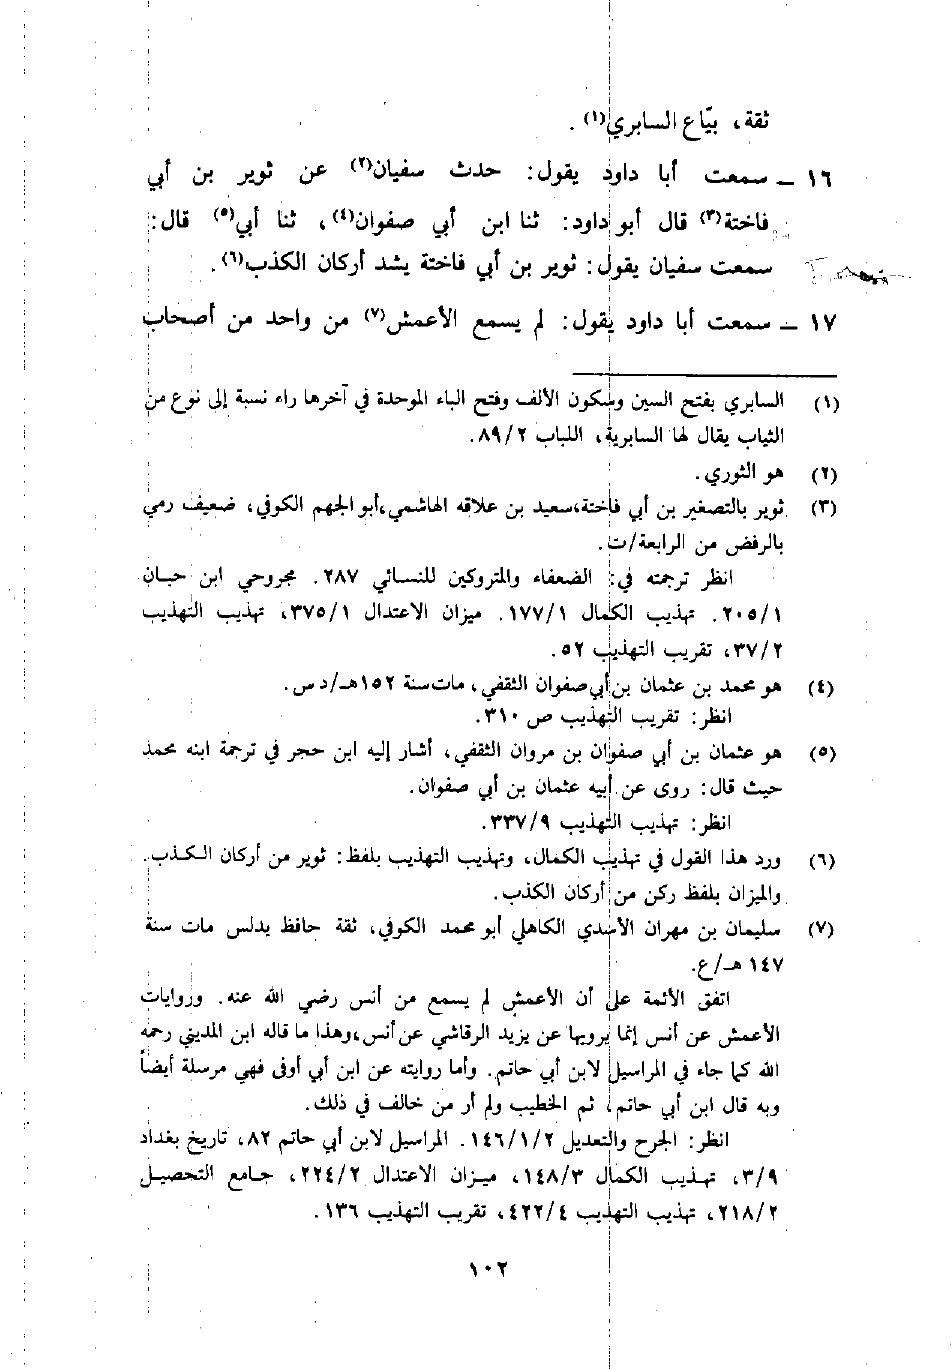 ثقة، بيّاع السابري(١).
١٦ ــ سمعت أبا داود يقول: حدث سفيان(٢) عن ثوير بن أبي
فاختة(٣) قال أبو داود: ثنا ابن أبي صفوان(٤)، ثنا أبي(٥) قال:
سمعت سفيان يقول: ثوير بن أبي فاختة يشد أركان الكذب(٦).
١٧ ــ سمعت أبا داود يقول: لم يسمع الأعمش(٧) من واحد من أصحاب
(١) السابري بفتح السين وسكون الألف وفتح الباء الموحدة في آخرها راء نسبة إلى نوع من
الثياب يقال لها السابرية، اللباب ٨٩/٢.
(٢) هو الثوري.
(٣) ثوير بالتصغير بن أبي فاختة،سعيد بن علاقه الهاشمي،أبو الجهم الكوفي، ضعيف رمي
بالرفض من الرابعة/ت.
انظر ترجمته في: الضعفاء والمتروكين للنسائي ٢٨٧. مجروحي ابن حبان
٢٠٥/١. تهذيب الكمال ١٧٧/١. ميزان الاعتدال ٣٧٥/١، تهذيب التهذيب
٣٧/٢، تقريب التهذيب ٥٢.
(٤) هو محمد بن عثمان بن أبي صفوان الثقفي، مات سنة ١٥٢هـ/د س.
انظر: تقريب التهذيب ص ٣١٠.
(٥) هو عثمان بن أبي صفوان بن مروان الثقفي، أشار إليه ابن حجر في ترجمة ابنه محمد
حيث قال: روى عن أبيه عثمان بن أبي صفوان.
انظر: تهذيب التهذيب ٣٣٧/٩.
(٦) ورد هذا القول في تهذيب الكمال، وتهذيب التهذيب بلفظ: ثوير من أركان الكذب.
والميزان بلفظ ركن من أركان الكذب.
(٧) سليمان بن مهران الأسدي الكاهلي أبو محمد الكوفي، ثقة حافظ يدلس مات سنة
١٤٧ هـ/ع.
اتفق الأئمة على أن الأعمش لم يسمع من أنس رضي الله عنه. وروايات
الأعمش عن أنس إنما يرويها عن يزيد الرقاشي عن أنس،وهذا ما قاله ابن المديني رحمه
الله كما جاء في المراسيل لابن أبي حاتم. وأما روايته عن ابن أبي أوفى فهي مرسلة أيضاً
وبه قال ابن أبي حاتم، ثم الخطيب ولم أر من خالف في ذلك.
انظر: الجرح والتعديل ١٤٦/١/٢. المراسيل لابن أبي حاتم ٨٢، تاريخ بغداد
٣/٩، تهذيب الكمال ١٤٨/٣، ميزان الاعتدال ٢٢٤/٢، جامع التحصيل
٢١٨/٢، تهذيب التهذيب ٤٢٢/٤، تقريب التهذيب ١٣٦.
١٠٢